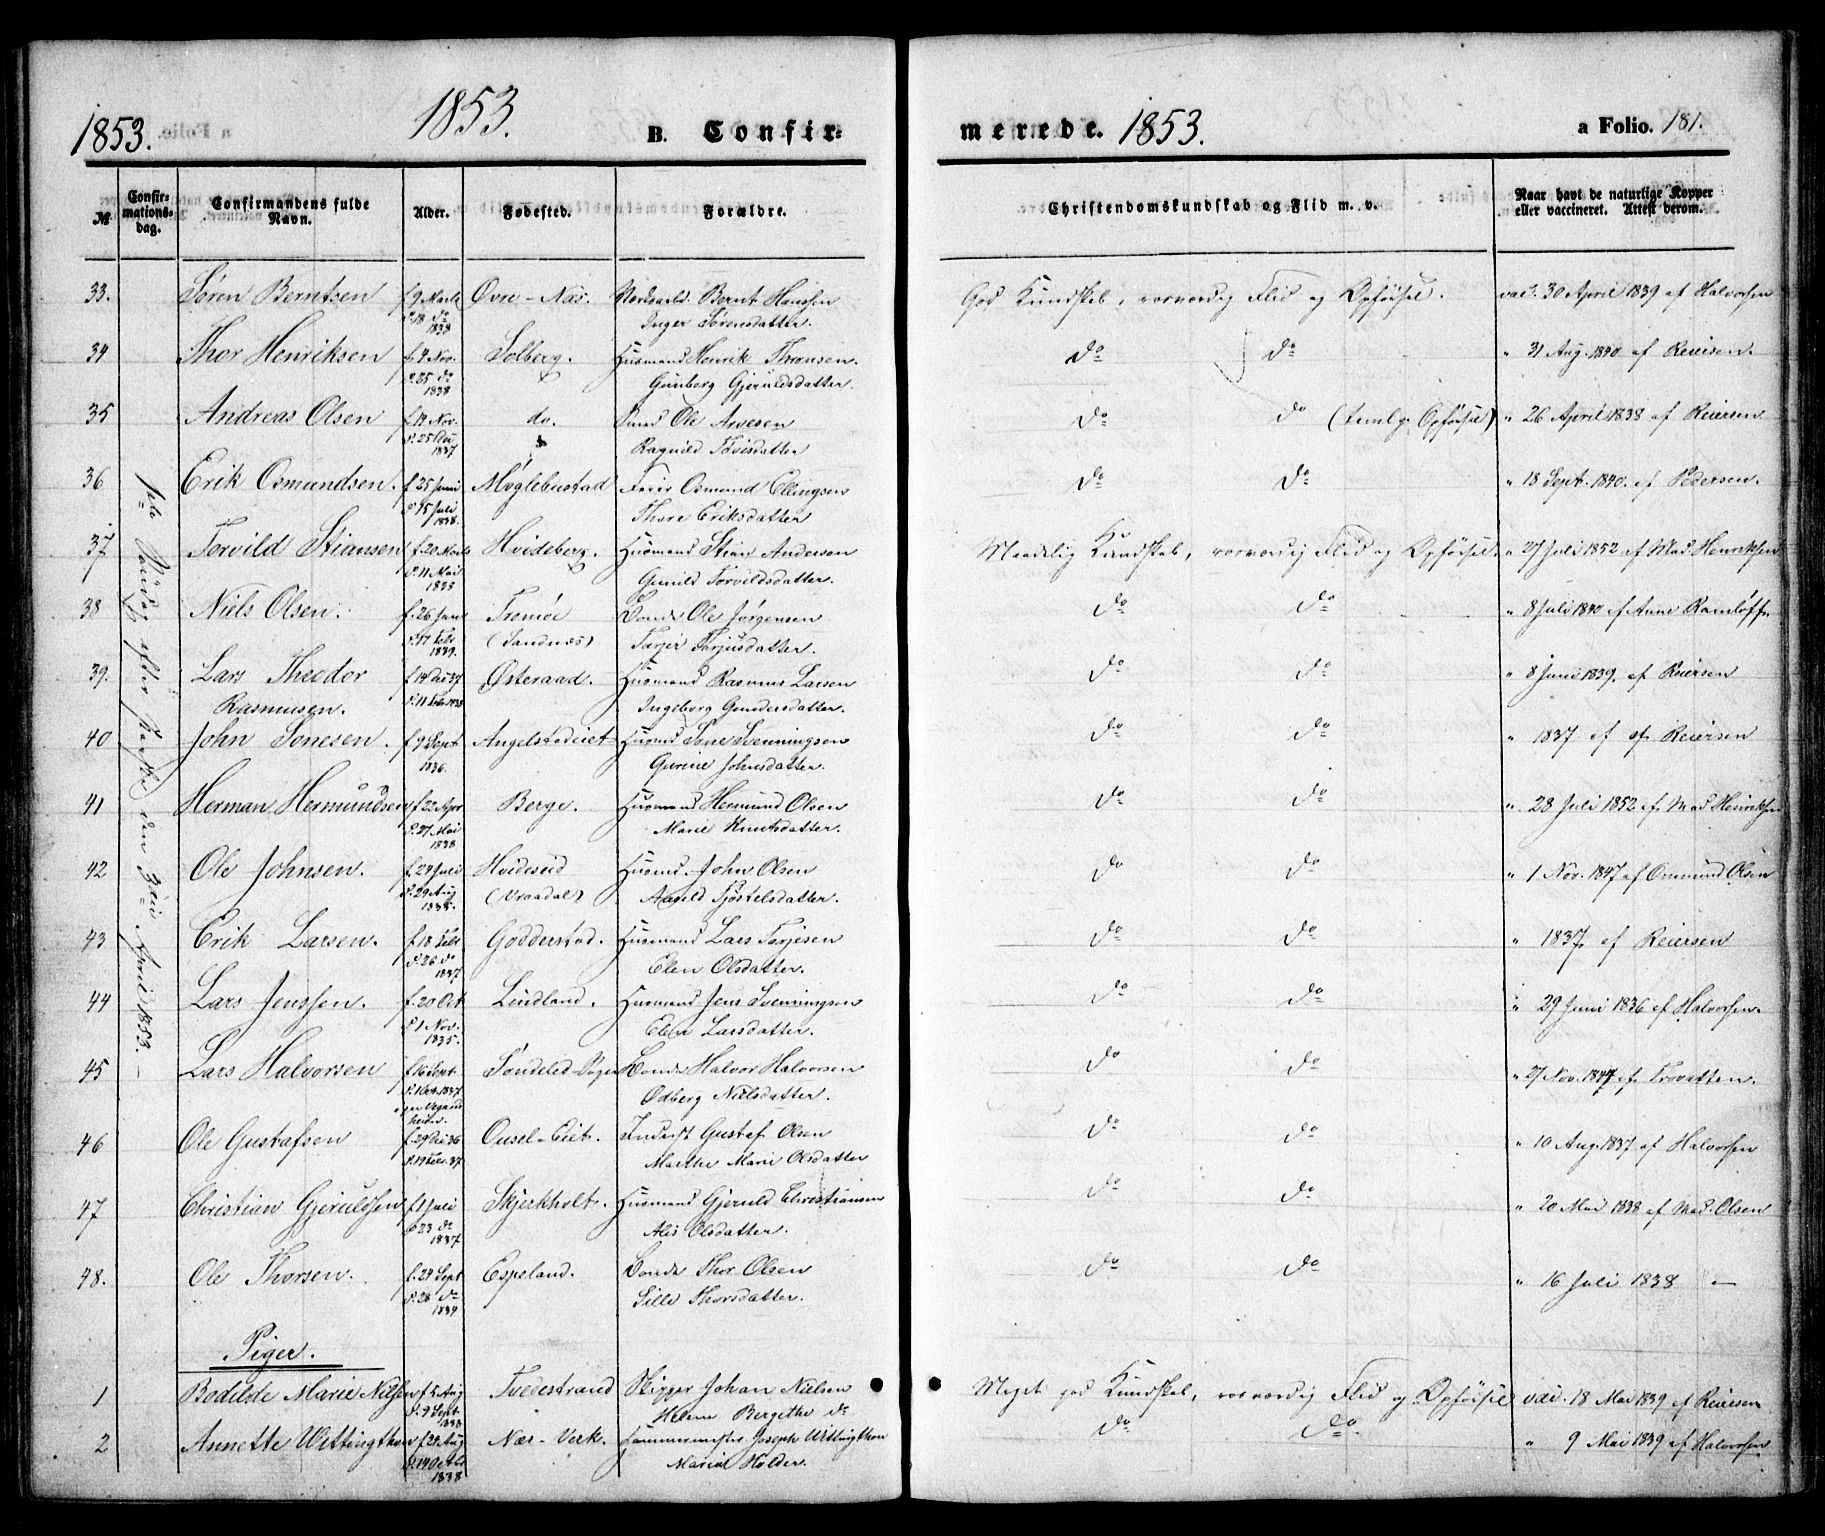 1853.
1853.
B. Confir-
merede. 1853.
a Folio. 181.
№
Confir-
mations-
dag.
Confirmandens fulde
Navn.
Alder.
Fødested.
Forældre.
Christendomskundskab og Flid m. v.
Naar havt de naturlige Kopper
eller vaccineret. Attest derom.
1ste Søndag efter Paaske den 3die April 1853. —
33. Søren Berntsen f. 9 Marts Øvre-Næs. Bernt Hanssen God Kundskab, Flid og Opførsel. vac. 30 April 1839 af Halvorsen
d. 18 do Inger Sørensdatter.
1838
34 Thor Henriksen f. 4 Nov. Solberg. Husmand Henrik do do " 31 Aug. 1840 af Reiersen.
d. 25 do Gunborg Gjeruldsdatter.
1838
35 Andreas Olsen f. 14 Nov. do. Ole Arvesen do do (temlg. Opførsel) " 26 April 1838 af Reiersen
1837
36 Erik Osmundsen. f. 25 Juni Møglebustad Osmund Ellingsen do do " 18 Sept. 1840. af Pedersen.
d. 15 Juli Thore Eriksdatter
1838.
37 Torvild Stiansen f. 20 Marts Hvideberg. Husmand Stian Andersen Maadelig Kundskab, Flid og Opførsel. " 27 Juli 1852 af Mad. Henriksen
d. 11 Mai Gunild Torvildsdatter.
38 Niels Olsen. f. 26 Jan Tromøe Bonde Ole Jørgensen do do " 8 Juli 1840 af Anne
d. 17 Febr (Sandnæs) Tarjer Torjusdatter.
1839.
39. Lars Theodor f. 14 Dec 37 Østeraad. Husmand Rasmus Larsen do do " 8 Juni 1839. af Reiersen
Rasmusen. d. 11 Febr 1838 Ingeborg Gundersdatter.
40 John Tonesen. f. 9 Sept Angelstadeiet Husmd Tone Svenningsen do do " 1837 af af Reiersen
1836. Gurine Johnsdatter.
41 Herman Hermundsen f. 22 Apr Berge. Husmand Hermund Olsen do do " 28 Juli 1852 af Mad Henriksen
d. 27 Mai Marie Knutsdatter.
1838
42 Ole Johnsen. f. 24 Juli Hvideseid Husmd. John Olsen do do " 1 Nov. 1847 af Omund Olsen
d. 29 Aug (Vraadal) Aagild Tjøstelsdatter.
43 Erik Larsen. f. 18 Febr Godderstad. Husmand Lars Torjesen do do " 1837 af Reiersen
d. 26 do Elen Olsdatter.
1837
44 Lars Jenssen. f. 20 Oct Lindland. Husmand Jens Svenningsen do do " 29 Juni 1836 af Halvorsen.
d. 1 Nov. Elen Larsdatter.
1835.
45 Lars Halvorsen f. 16 Sept Søndeled Bonde Halvor Halvorsen do do " 27 Nov. 1847 af Trovatten.
Odberg Nielsdatter.
46 Ole Gustafsen f. 29 Dec 36 Ousel-Eiet. Inderst Gustaf Olsen do do " 10 Aug. 1837 af Halvorsen
d. 19 Febr. 37 Marthe Marie Olsdatter
47 Christian Gjeruldsen f. 1 Juli Skjerkholt. Husmand Gjeruld Christiansen do do " 20 Mai 1838 af Mad. Olsen
d. 23 do Alis Olsdatter.
1837
48. Ole Thorsen. f. 24 Sept Espeland. Bonde Thor Olsen do do " 16 Juli 1838 —
d. 28 do Sille Thorsdatter.
Piger.
1 Bodilde Marie Nilsen f. 5 Aug Tvedestrand Skipper Johan Nielsen Meget god Kundskab, Flid og Opførsel vac. 18 Mai 1839 af Reiersen
d. 9 Sept Helene Bergithe do
1838
2 Annette Wittingthon f. 24 Aug Næs-Verk. Hammermester Joseph Wittingthon do do. " 9 Mai 1839 af Halvorsen
Maria Holder.
1838